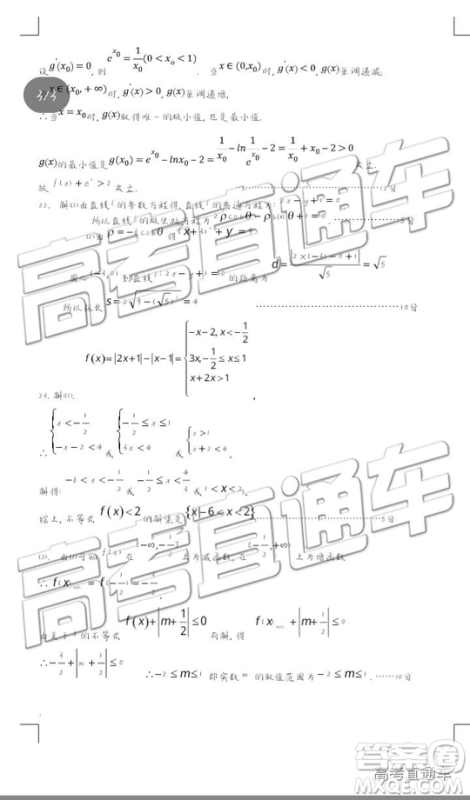 设 g′(x₀)=0, 则 e^{x₀}=1/x₀(0<x₀<1) . 当 x∈(0,x₀) 时, g′(x)<0, g(x)单调递减,
3/3 x∈(x₀,+∞) 时, g′(x)>0, g(x)单调递增,
∴当 x=x₀ 时, g(x)取得唯一的极小值, 也是最小值.
g(x)的最小值是 g(x₀)=e^{x₀}-lnx₀-2=1/x₀-ln 1/e^{x₀}-2=1/x₀+x₀-2>0 成立.
故 f(x)+e^x>2 成立. 12分
22. 解(1)由直线l的参数方程得, 直线l的普通方程为: 2x-y+1=0
所以直线l的极坐标方程为 2ρcosθ-ρsinθ+1=0 5分
(2)由 ρ=-6cosθ 得 (x+3)²+y²=9
圆心(-3,0)到直线l: 2x-y+1=0 的距离为 d=|2×(-3)-0+1|/√5=√5
所以弦长 s=2√(9-(√5)²)=4 10分
f(x)=|2x+1|-|x-1|={-x-2,x<-1/2 3x,-1/2≤x≤1 x+2,x>1
23. 解(1), ,
∴ {x<-1/2 -x-2<4 或 {-1/2≤x≤1 3x<4 或 {x>1 x+2<4
解得: -6<x<-1/2 或 -1/2≤x≤ 或 1<x<2,
综上, 不等式 f(x)<2 的解集是 {x|-6<x<2} 5分
(2), 由(1)可知 f(x) 在 (-∞,-1/2) 上为减函数, 在 (-1/2,+∞) 上为增函数
∴ f(x)=f(-1/2)=-
由关于x的不等式 f(x)+|m+1/2|≤0 有解, 得 f(x)+|m+1/2|≤0
∴-3/2+|m+1/2|≤0 ∴-2≤m≤1 即实数m的取值范围为 -2≤m≤1. ……10分
高考直通车
高考直通车
答案圈
高考直通车